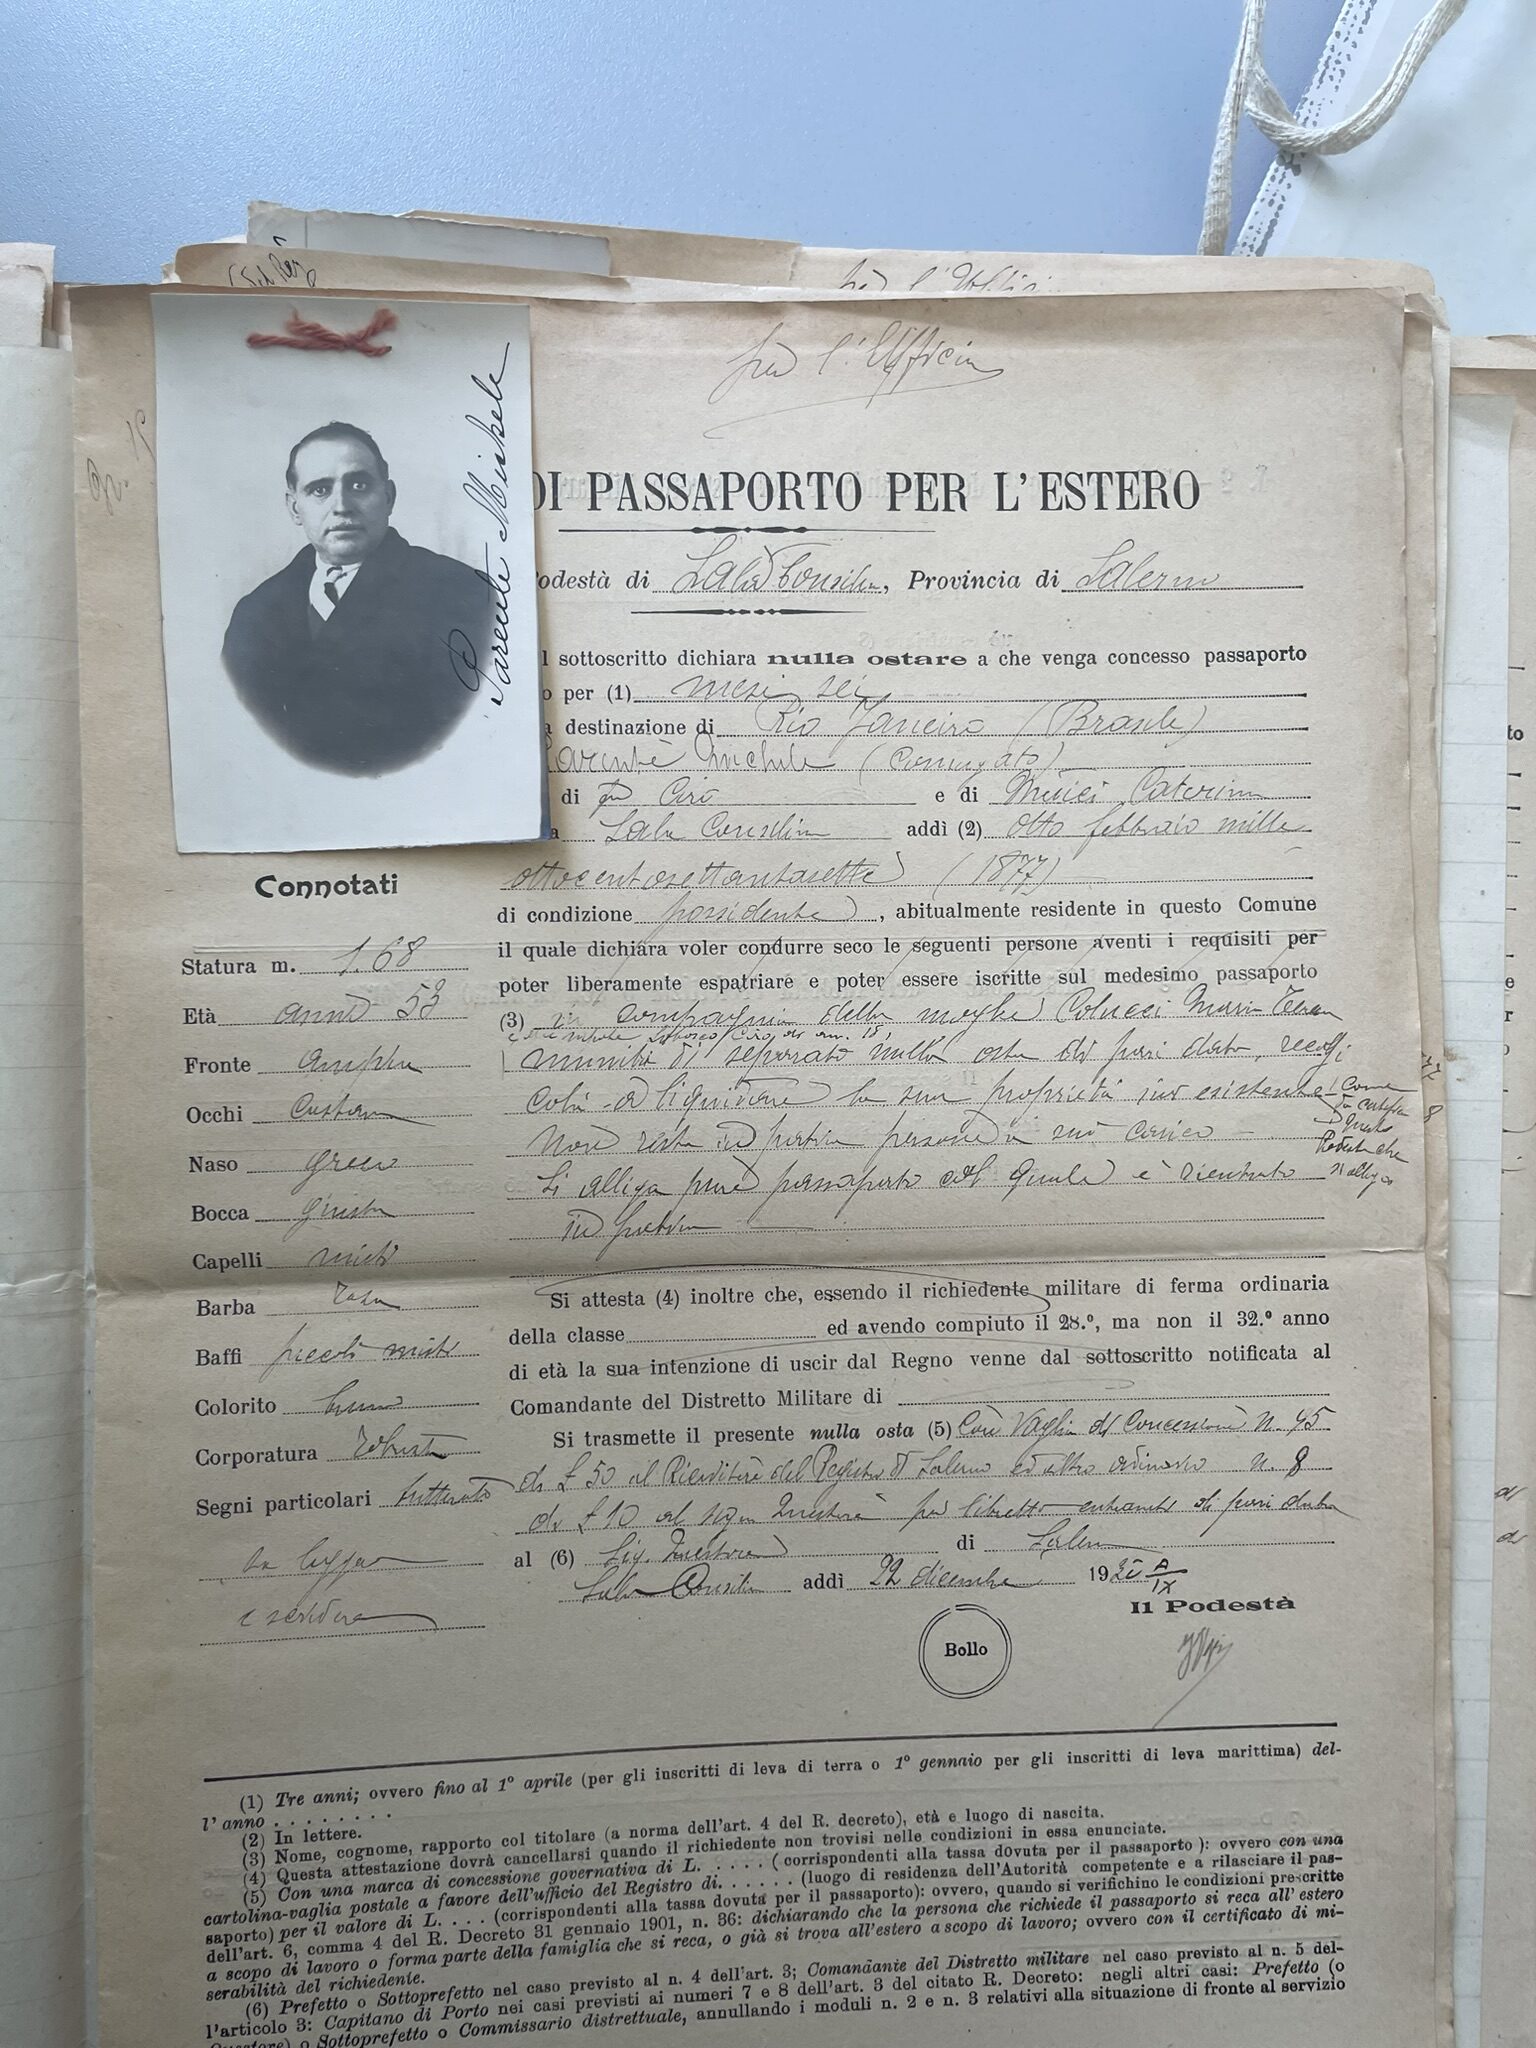 per l'Ufficio
DI PASSAPORTO PER L'ESTERO
Parente Michele
Podestà di Sala Consilina, Provincia di Salerno
l sottoscritto dichiara nulla ostare a che venga concesso passaporto
o per (1) mesi sei
a destinazione di Rio Janeiro (Brasile)
Parente Michele (Coniugato)
di fu Ciro e di Caterina
a Sala Consilina addì (2) otto febbraio mille
ottocentosettantasette (1877)
di condizione possidente, abitualmente residente in questo Comune
il quale dichiara voler condurre seco le seguenti persone aventi i requisiti per
poter liberamente espatriare e poter essere iscritte sul medesimo passaporto
(3) in compagnia della moglie Colucci Maria Teresa
muniti di separato nulla osta di pari data,
colà a liquidare la sua proprietà ivi esistente
Non resta in patria persone a suo carico
Si alliga pure passaporto col quale è rientrato
in patria
come
questo
Podestà che
si alliga
Connotati
Statura m. 1.68
Età anni 53
Fronte ampia
Occhi Castani
Naso greco
Bocca giusta
Capelli misti
Barba rasa
Baffi piccoli misti
Colorito bruno
Corporatura robusta
Segni particolari
Si attesta (4) inoltre che, essendo il richiedente militare di ferma ordinaria
della classe ed avendo compiuto il 28.º, ma non il 32.º anno
di età la sua intenzione di uscir dal Regno venne dal sottoscritto notificata al
Comandante del Distretto Militare di
Si trasmette il presente nulla osta (5) Con Vaglia di Concessione N. 45
di £ 50 al Ricevitore del Registro di Salerno ed altro ordinario N. 8
di £ 10 al sign Questore per libretto entrambi di pari data
al (6) Sig. Questore di Salerno
Sala Consilina addì 22 dicembre 1930 A IX
Il Podestà
Bollo
(1) Tre anni; ovvero fino al 1º aprile (per gli inscritti di leva di terra o 1º gennaio per gli inscritti di leva marittima) del-
l'anno . . . . . . . .
(2) In lettere.
(3) Nome, cognome, rapporto col titolare (a norma dell'art. 4 del R. decreto), età e luogo di nascita.
(4) Questa attestazione dovrà cancellarsi quando il richiedente non trovisi nelle condizioni in essa enunciate.
(5) Con una marca di concessione governativa di L. . . . . (corrispondenti alla tassa dovuta per il passaporto): ovvero con una
cartolina-vaglia postale a favore dell'ufficio del Registro di. . . . . . (luogo di residenza dell'Autorità competente e a rilasciare il pas-
saporto) per il valore di L. . . . (corrispondenti alla tassa dovuta per il passaporto): ovvero, quando si verifichino le condizioni prescritte
dell'art. 6, comma 4 del R. Decreto 31 gennaio 1901, n. 36: dichiarando che la persona che richiede il passaporto si reca all'estero
a scopo di lavoro o forma parte della famiglia che si reca, o già si trova all'estero a scopo di lavoro; ovvero con il certificato di mi-
serabilità del richiedente.
(6) Prefetto o Sottoprefetto nel caso previsto al n. 4 dell'art. 3; Comandante del Distretto militare nel caso previsto al n. 5 del-
l'articolo 3: Capitano di Porto nei casi previsti ai numeri 7 e 8 dell'art. 3 del citato R. Decreto: negli altri casi: Prefetto (o
Questore) o Sottoprefetto o Commissario distrettuale, annullando i moduli n. 2 e n. 3 relativi alla situazione di fronte al servizio